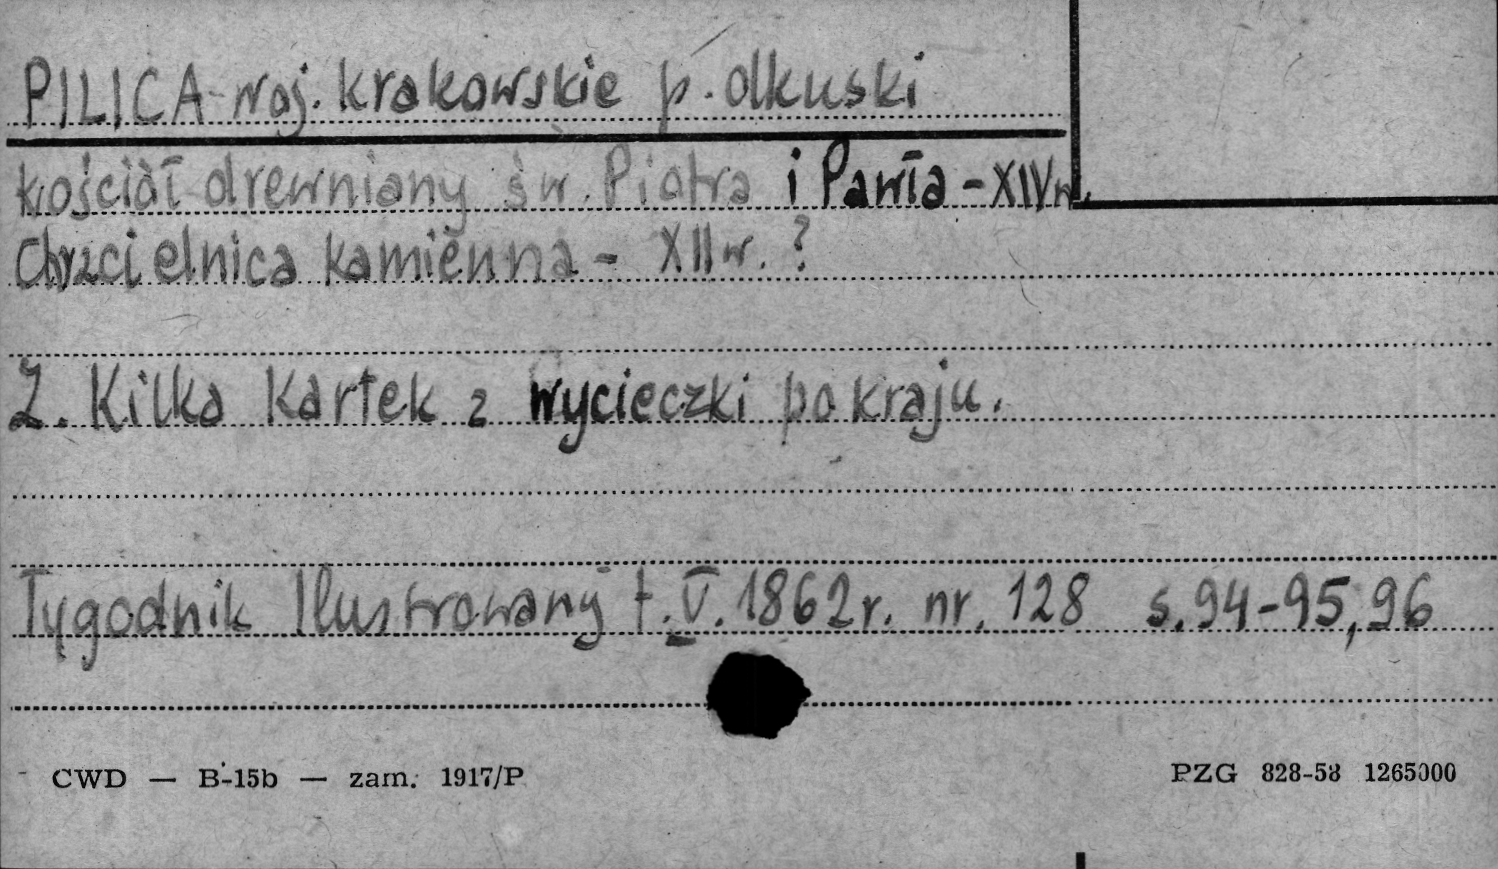 PILICA - woj. krakowskie p. olkuski
kościół drewniany św. Piotra i Pawła - XIV w.
Chrzcielnica kamienna - XII w. ?
Z. Kilka Kartek z wycieczki po kraju.
Tygodnik Ilustrowany t. V. 1862r. nr. 128 s. 94-95, 96
CWD — B-15b — zam. 1917/P
PZG 828-58 1265000